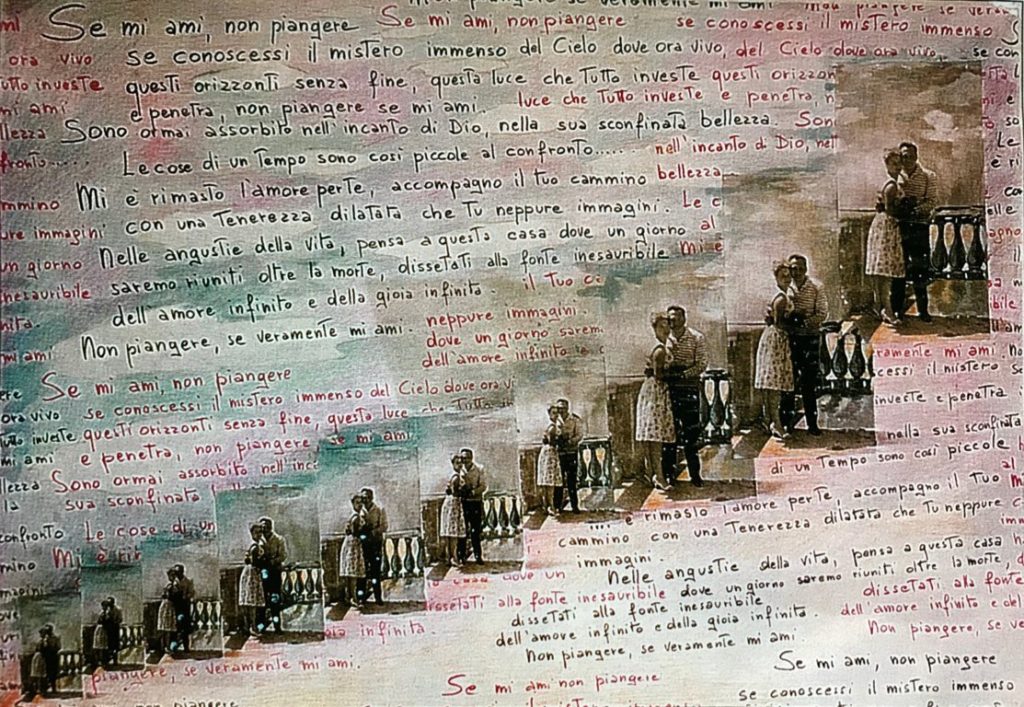 non piangere se veramente mi ami non piangere se veram
mi Se mi ami, non piangere Se mi ami, non piangere se conoscessi il mistero immenso S
ora vivo se conoscessi il mistero immenso del Cielo dove ora vivo, del Cielo dove ora vivo, se con
Tutto investe questi orizzonti senza fine, questa luce che Tutto investe questi orizzon
mi ami e penetra, non piangere se mi ami. luce che Tutto investe e penetra, n
llezza Sono ormai assorbito nell'incanto di Dio, nella sua sconfinata bellezza. Son
fronto..... Le cose di un Tempo sono così piccole al confronto..... nell'incanto di Dio, nel
mmino Mi è rimasto l'amore per te, accompagno il tuo cammino bellezza
ure immagini con una Tenerezza dilatata che Tu neppure immagini. Le c
un giorno Nelle angustie della vita, pensa a questa casa dove un giorno al
inesauribile saremo riuniti oltre la morte, dissetati alla fonte inesauribile Mi è
nita. dell'amore infinito e della gioia infinita. il Tuo c
mi ami Non piangere, se veramente mi ami. neppure immagini.
dove un giorno sarem
dell'amore infinito e
ramente mi ami. No
ere Se mi ami, non piangere
cessi il miistero
ora vivo se conoscessi il mistero immenso del Cielo dove ora vi
investe e penetra
Tutto investe questi orizzonti senza fine, questa luce che Tutto in
mi ami e penetra, non piangere se mi ami
nella sua sconfinata
llezza Sono ormai assorbito nell'inc
di un Tempo sono così piccole
la sua sconfinata
... è rimasto l'amore per te, accompagno il Tuo
confronto Le cose di un
cammino con una Tenerezza dilatata che Tu neppure
mino Mi è rim
immagini. Nelle angustie della vita, pensa a questa casa
dove un dove un giorno saremo riuniti oltre la morte,
ssetati alla fonte inesauribile dissetati alla fonte
dissetati alla fonte inesauribile
dell'amore infinito e
oia infinita. dell'amore infinito e della gioia infinita
Non piangere, se ve
piangere, se veramente mi ami. Non piangere, se veramente mi ami.
Se mi ami, non piangere
Se mi ami non piangere
se conoscessi il misTero immenso